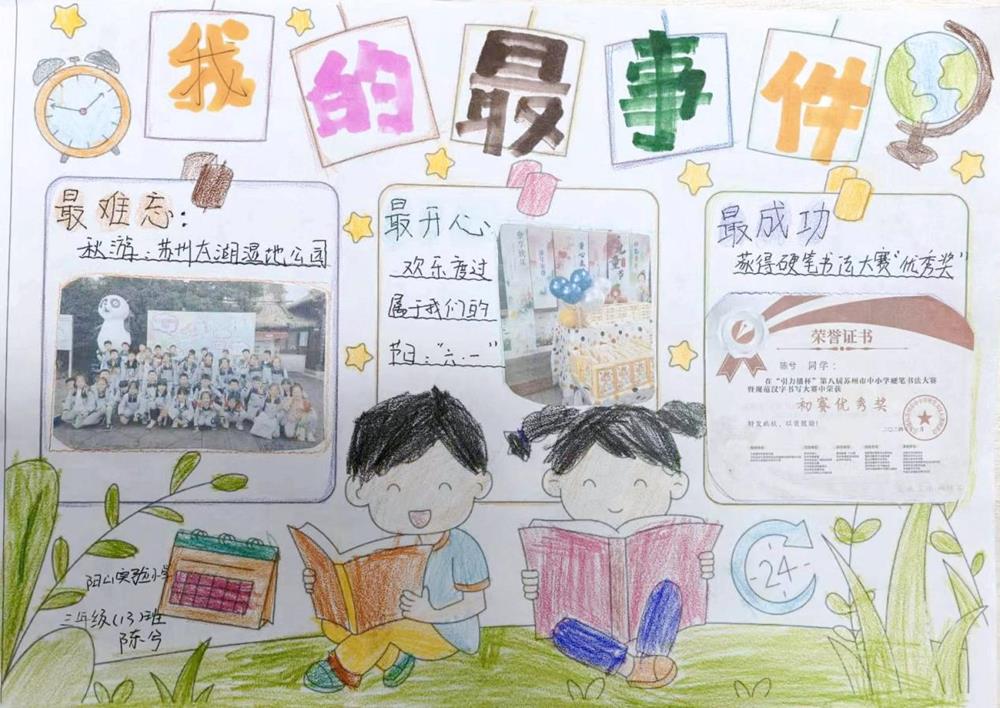 我的最事件
最难忘:
秋游:苏州太湖湿地公园
最开心:
欢乐度过
属于我们的
节日:“六·一”
最成功
获得硬笔书法大赛“优秀奖”
荣誉证书
陈兮 同学:
在“引力播杯”第八届苏州市中小学硬笔书法大赛
暨规范汉字书写大赛中荣获
初赛优秀奖
特发此状,以资鼓励!
24
阳山实验小学
三年级(13)班
陈兮